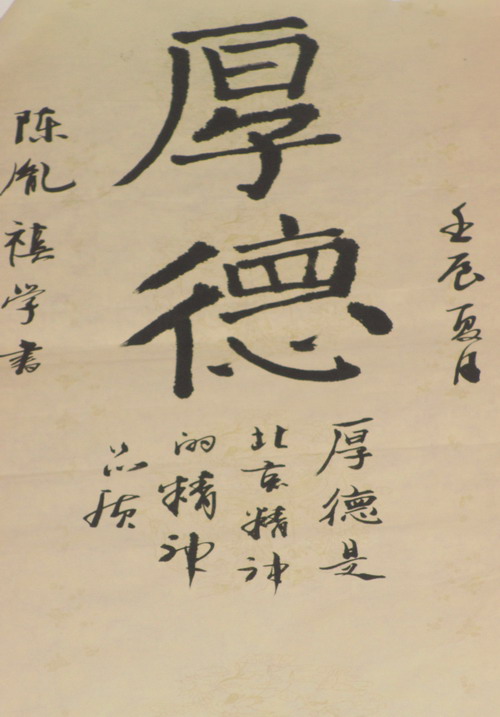 厚德
壬辰夏月
厚德是
北京精神
的精神
品质
陈胤禧学书